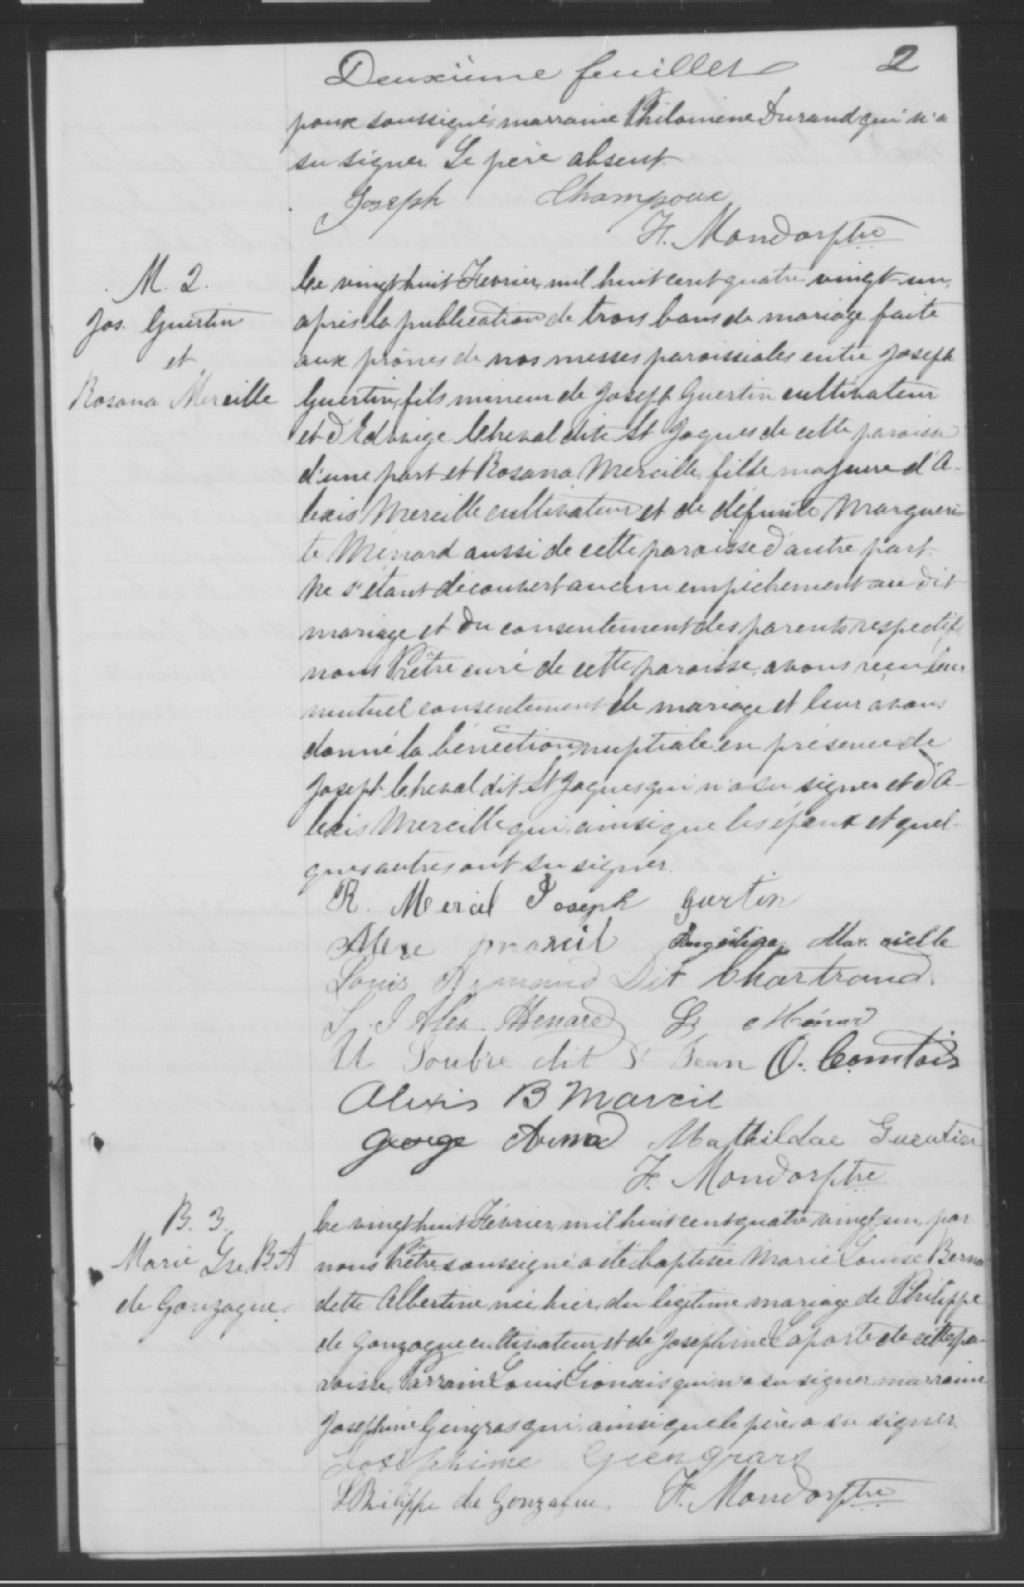 Deuxième feuillet 2
poux soussigné, marraine Philomène Durand qui n'a
su signer. Le père absent
Joseph Champoux
F. Mondor Ptre
M. 2.
Jos. Guertin
et
Rosana Mercille
Ce vingt huit Fevrier mil huit cent quatre vingt-un,
après la publication de trois bans de mariage faite
aux prônes de nos messes paroissiales entre Joseph
Guertin, fils mineur de Joseph Guertin cultivateur
et d'Edwige Cheval dite St Jaques de cette paroisse
d'une part et Rosana Mercille, fille majeure d'A-
lexis Mercille cultivateur et de défunte Margueri-
te Ménard aussi de cette paroisse d'autre part.
Ne s'étant découvert aucun empêchement au dit
mariage et du consentement des parents respectifs
nous Prêtre curé de cette paroisse, avons reçu leur
mutuel consentement de mariage et leur avons
donné la bénection nuptiale en présence de
Joseph Cheval dit St Jaques qui n'a su signer et d'A-
lexis Mercille qui ainsi que les époux et quel-
ques autres ont su signer.
R. Mercil Joseph Gurtin
marcil
Louis Dit Chartrand.
Alex. Menard
dit St Jean O. Comtois
Alexis B Marcil
george Mathildae
F. Mondor Ptre
B. 3.
Marie Lse B. A
de Gonzague.
Ce vingt huit Février mil huit cent quatre vingt-un, par
nous Prêtre soussigné a été baptisée Marie Louise Berna
dette Albertine née hier, du légitime mariage de Philippe
de Gonzague cultivateur et de Josephine Laporte de cette pa-
roisse. Parrain Louis Lionais qui n'a su signer, marraine
Josephine Gingras qui, ainsi que le père, a su signer.
Josephine Giengrars
LPhilippe de Gonzague. F. Mondor Ptre